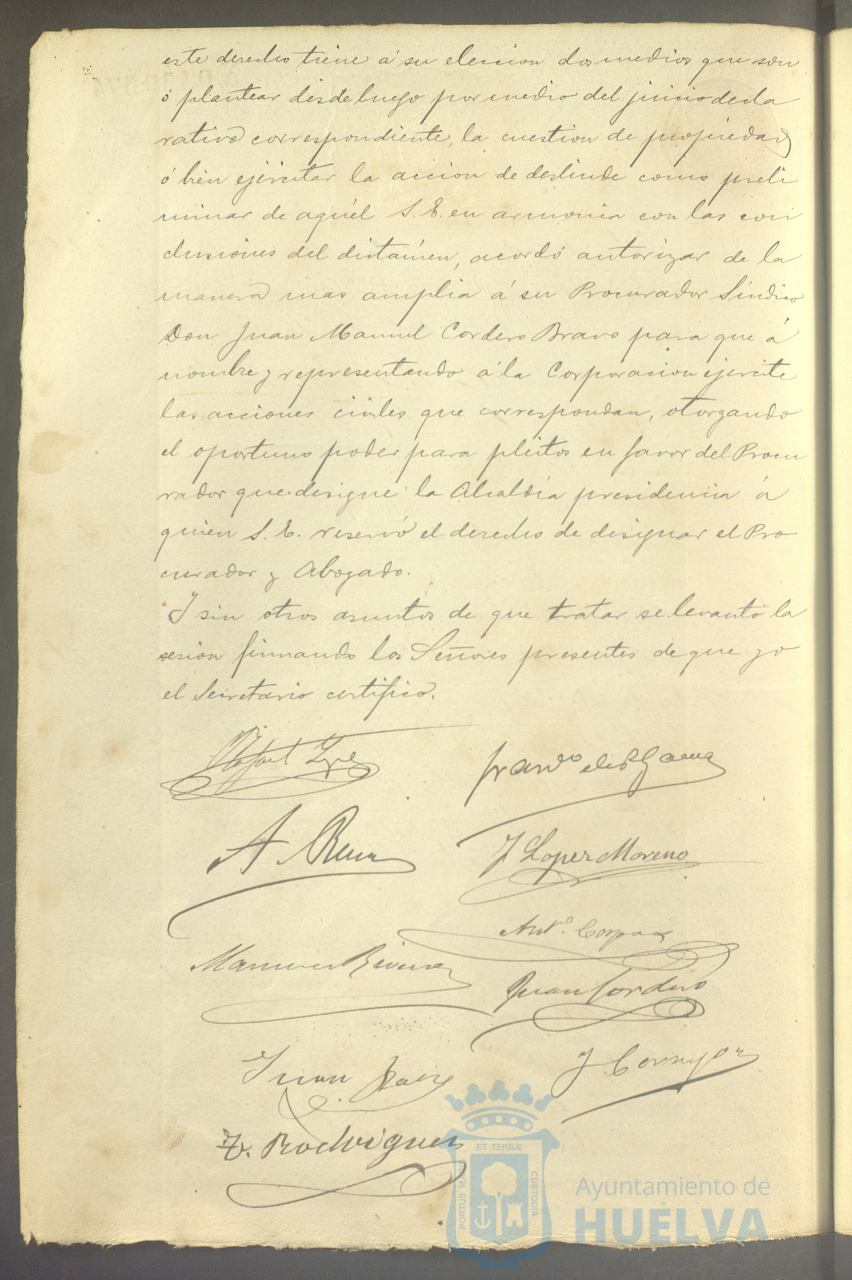 este derecho tiene á su eleccion dos medios que son
ó plantear desde luego por medio del juicio decla
rativo correspondiente, la cuestion de propiedad
ó bien ejercitar la accion de deslinde como preli
minar de aquél S. E. en armonia con las con
clusiónes del dictámen, acordó autorizar de la
manera mas amplia á su Procurador Síndico
Don Juan Manuel Cordero Bravo para que á
nombre y representando á la Corporacion ejercite
las acciones civiles que correspondan, otorgando
el oportuno poder para pleitos en favor del Procu
rador que designe la Alcaldía presidencia á
quien S. E. reservó el derecho de designar el Pro
curador y Abogado.
Y sin otros asuntos de que tratar se levantó la
sesion firmando los Señores presentes de que yo
el Secretario certifico.
Rafael
A
J Lopez Moreno
Manuel Rivera
Juan Cordero
Juan
J
Rodriguez
ET TERRÆ
PORTUS MARIS
CUSTODIA
Ayuntamiento de
HUELVA